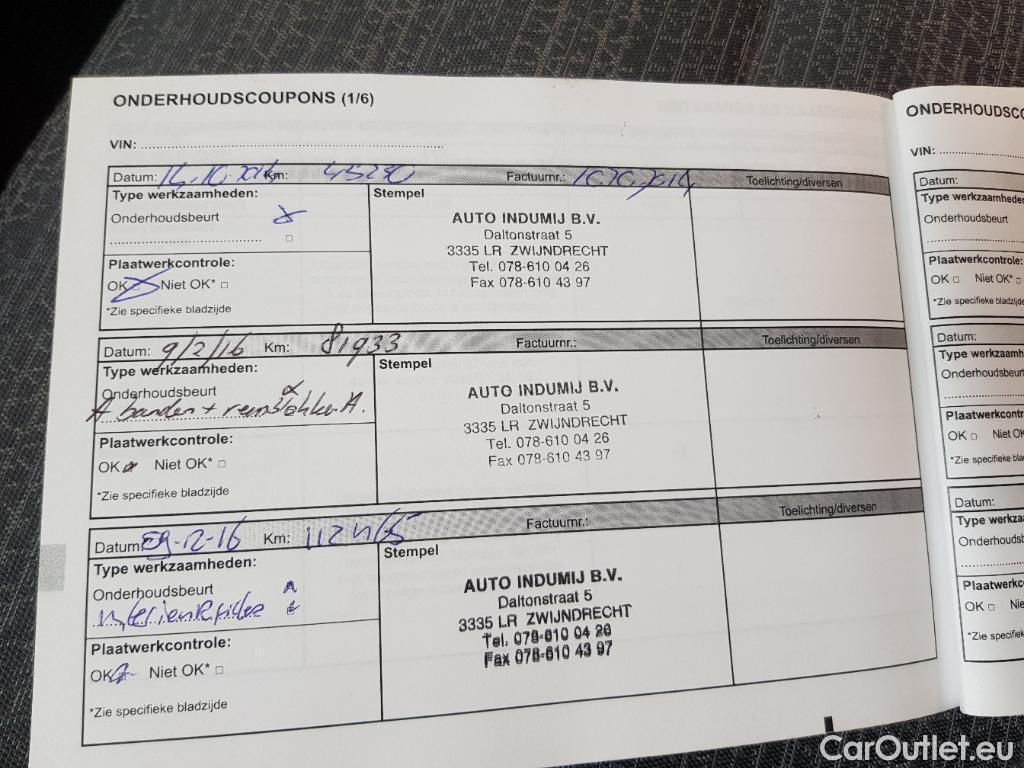 ONDERHOUDSCOUPONS (1/6)
VIN:
Datum: Km: 45230 Factuurnr.: Toelichting/diversen
Type werkzaamheden: Stempel
Onderhoudsbeurt
AUTO INDUMIJ B.V.
Daltonstraat 5
3335 LR ZWIJNDRECHT
Tel. 078-610 04 26
Fax 078-610 43 97
Plaatwerkcontrole:
OK Niet OK*
*Zie specifieke bladzijde
Datum: 9/2/16 Km: 81933 Factuurnr.: Toelichting/diversen
Type werkzaamheden: Stempel
Onderhoudsbeurt
banden +
AUTO INDUMIJ B.V.
Daltonstraat 5
3335 LR ZWIJNDRECHT
Tel. 078-610 04 26
Fax 078-610 43 97
Plaatwerkcontrole:
OK Niet OK*
*Zie specifieke bladzijde
Datum: Km: Factuurnr.: Toelichting/diversen
Type werkzaamheden: Stempel
Onderhoudsbeurt
AUTO INDUMIJ B.V.
Daltonstraat 5
3335 LR ZWIJNDRECHT
Tel. 078-610 04 26
Fax 078-610 43 97
Plaatwerkcontrole:
OK Niet OK*
*Zie specifieke bladzijde
ONDERHOUDSCO
VIN:
Datum:
Type werkzaamheden
Onderhoudsbeurt
Plaatwerkcontrole:
OK Niet OK*
*Zie specifieke bladz
Datum:
Type werkzaamh
Onderhoudsbeurt
Plaatwerkcontr
OK Niet OK
*Zie specifieke bla
Datum:
Type werkza
Onderhoudsb
Plaatwerkc
OK Niet
*Zie specifiek
CarOutlet.eu